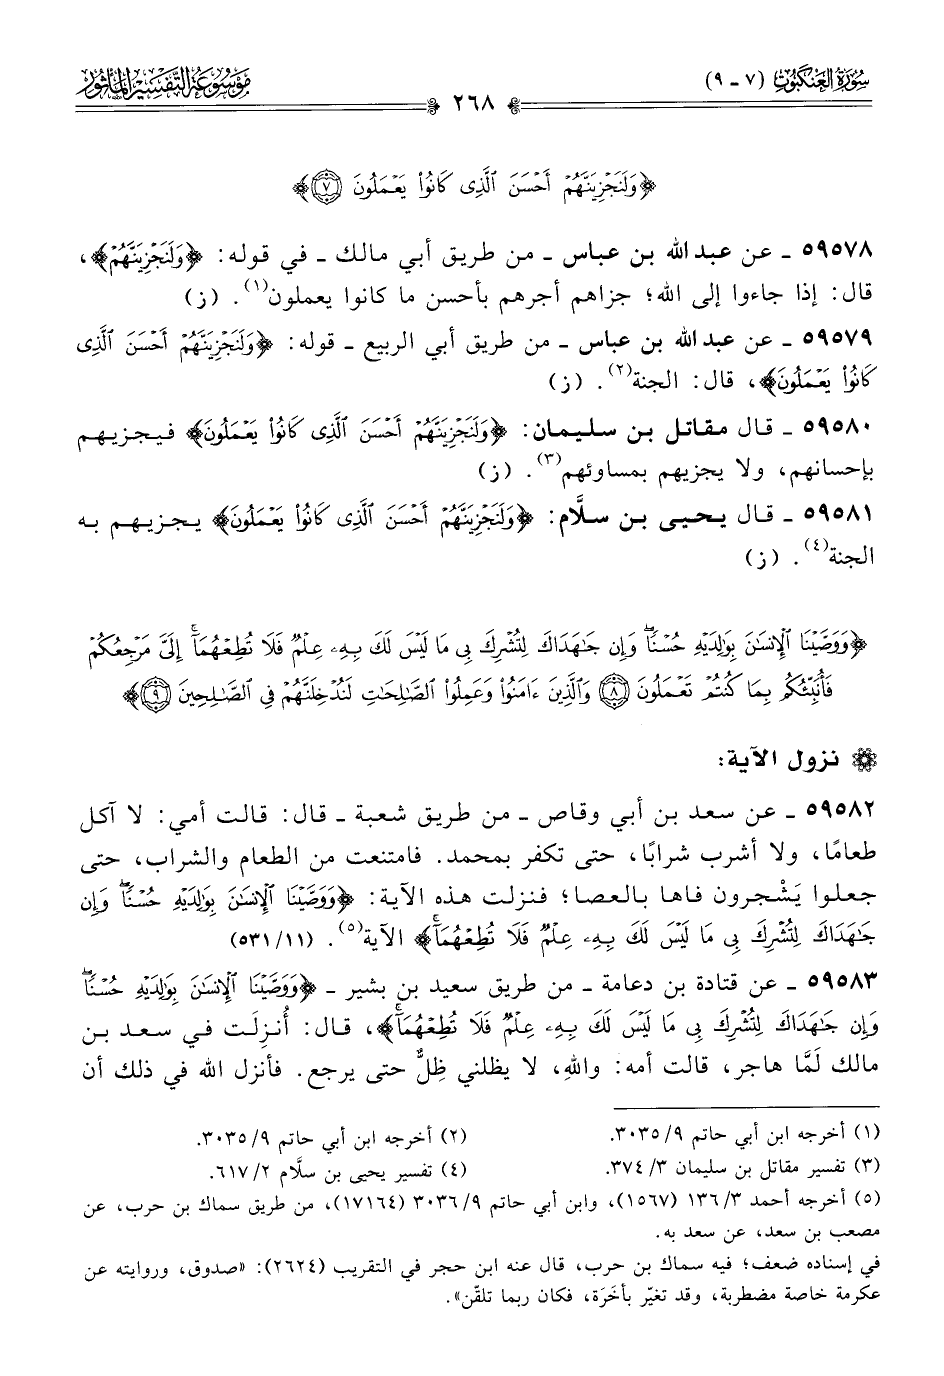 سُورَةُ العَنكَبُوتِ (٧ ـ ٩)
٢٦٨
مَوْسُوعَةُ التَّفْسِيرِ المَأْثُورِ
﴿وَلَنَجْزِيَنَّهُمْ أَحْسَنَ ٱلَّذِى كَانُواْ يَعْمَلُونَ ٧﴾
٥٩٥٧٨ ـ عن عبد الله بن عباس ـ من طريق أبي مالك ـ في قوله: ﴿وَلَنَجْزِيَنَّهُمْ﴾،
قال: إذا جاءوا إلى الله؛ جزاهم أجرهم بأحسن ما كانوا يعملون(١). (ز)
٥٩٥٧٩ ـ عن عبد الله بن عباس ـ من طريق أبي الربيع ـ قوله: ﴿وَلَنَجْزِيَنَّهُمْ أَحْسَنَ ٱلَّذِى
كَانُواْ يَعْمَلُونَ﴾، قال: الجنة(٢). (ز)
٥٩٥٨٠ ـ قال مقاتل بن سليمان: ﴿وَلَنَجْزِيَنَّهُمْ أَحْسَنَ ٱلَّذِى كَانُواْ يَعْمَلُونَ﴾ فيجزيهم
بإحسانهم، ولا يجزيهم بمساوئهم(٣). (ز)
٥٩٥٨١ ـ قال يحيى بن سلَّام: ﴿وَلَنَجْزِيَنَّهُمْ أَحْسَنَ ٱلَّذِى كَانُواْ يَعْمَلُونَ﴾ يجزيهم به
الجنة(٤). (ز)
﴿وَوَصَّيْنَا ٱلْإِنسَٰنَ بِوَٰلِدَيْهِ حُسْنًاۖ وَإِن جَٰهَدَاكَ لِتُشْرِكَ بِى مَا لَيْسَ لَكَ بِهِۦ عِلْمٌ فَلَا تُطِعْهُمَآۚ إِلَىَّ مَرْجِعُكُمْ
فَأُنَبِّئُكُم بِمَا كُنتُمْ تَعْمَلُونَ ٨ وَٱلَّذِينَ ءَامَنُواْ وَعَمِلُواْ ٱلصَّٰلِحَٰتِ لَنُدْخِلَنَّهُمْ فِى ٱلصَّٰلِحِينَ ٩﴾
نزول الآية:
٥٩٥٨٢ ـ عن سعد بن أبي وقاص ـ من طريق شعبة ـ قال: قالت أمي: لا آكل
طعامًا، ولا أشرب شرابًا، حتى تكفر بمحمد. فامتنعت من الطعام والشراب، حتى
جعلوا يَشْجرون فاها بالعصا؛ فنزلت هذه الآية: ﴿وَوَصَّيْنَا ٱلْإِنسَٰنَ بِوَٰلِدَيْهِ حُسْنًاۖ وَإِن
جَٰهَدَاكَ لِتُشْرِكَ بِى مَا لَيْسَ لَكَ بِهِۦ عِلْمٌ فَلَا تُطِعْهُمَآۚ﴾ الآية(٥). (١١/ ٥٣١)
٥٩٥٨٣ ـ عن قتادة بن دعامة ـ من طريق سعيد بن بشير ـ ﴿وَوَصَّيْنَا ٱلْإِنسَٰنَ بِوَٰلِدَيْهِ حُسْنًاۖ
وَإِن جَٰهَدَاكَ لِتُشْرِكَ بِى مَا لَيْسَ لَكَ بِهِۦ عِلْمٌ فَلَا تُطِعْهُمَآۚ﴾، قال: أُنزِلَت في سعد بن
مالك لَمَّا هاجر، قالت أمه: واللهِ، لا يظلني ظِلٌّ حتى يرجع. فأنزل الله في ذلك أن
(١) أخرجه ابن أبي حاتم ٩/ ٣٠٣٥. (٢) أخرجه ابن أبي حاتم ٩/ ٣٠٣٥.
(٣) تفسير مقاتل بن سليمان ٣/ ٣٧٤. (٤) تفسير يحيى بن سلَّام ٢/ ٦١٧.
(٥) أخرجه أحمد ٣/ ١٣٦ (١٥٦٧)، وابن أبي حاتم ٩/ ٣٠٣٦ (١٧١٦٤)، من طريق سماك بن حرب، عن
مصعب بن سعد، عن سعد به.
في إسناده ضعف؛ فيه سماك بن حرب، قال عنه ابن حجر في التقريب (٢٦٢٤): «صدوق، وروايته عن
عكرمة خاصة مضطربة، وقد تغيّر بأخَرَة، فكان ربما تلقّن».